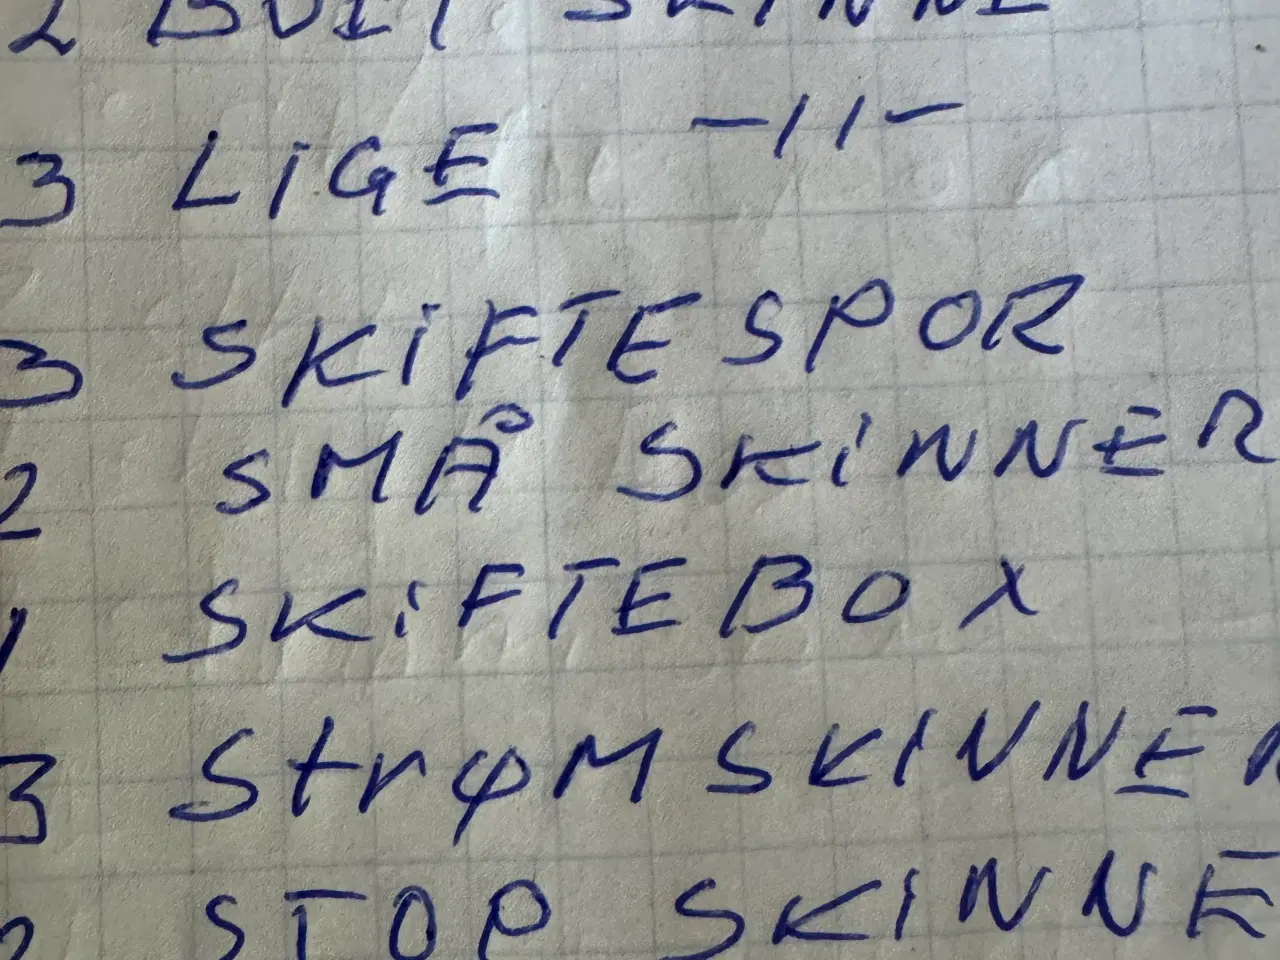 2 BUET SKINNE
3 LiGE -11-
3 SKiFTESPOR
2 SMÅ SKiNNER
1 SKiFTEBOX
3 StrøMSKINNER
STOP SKINNE